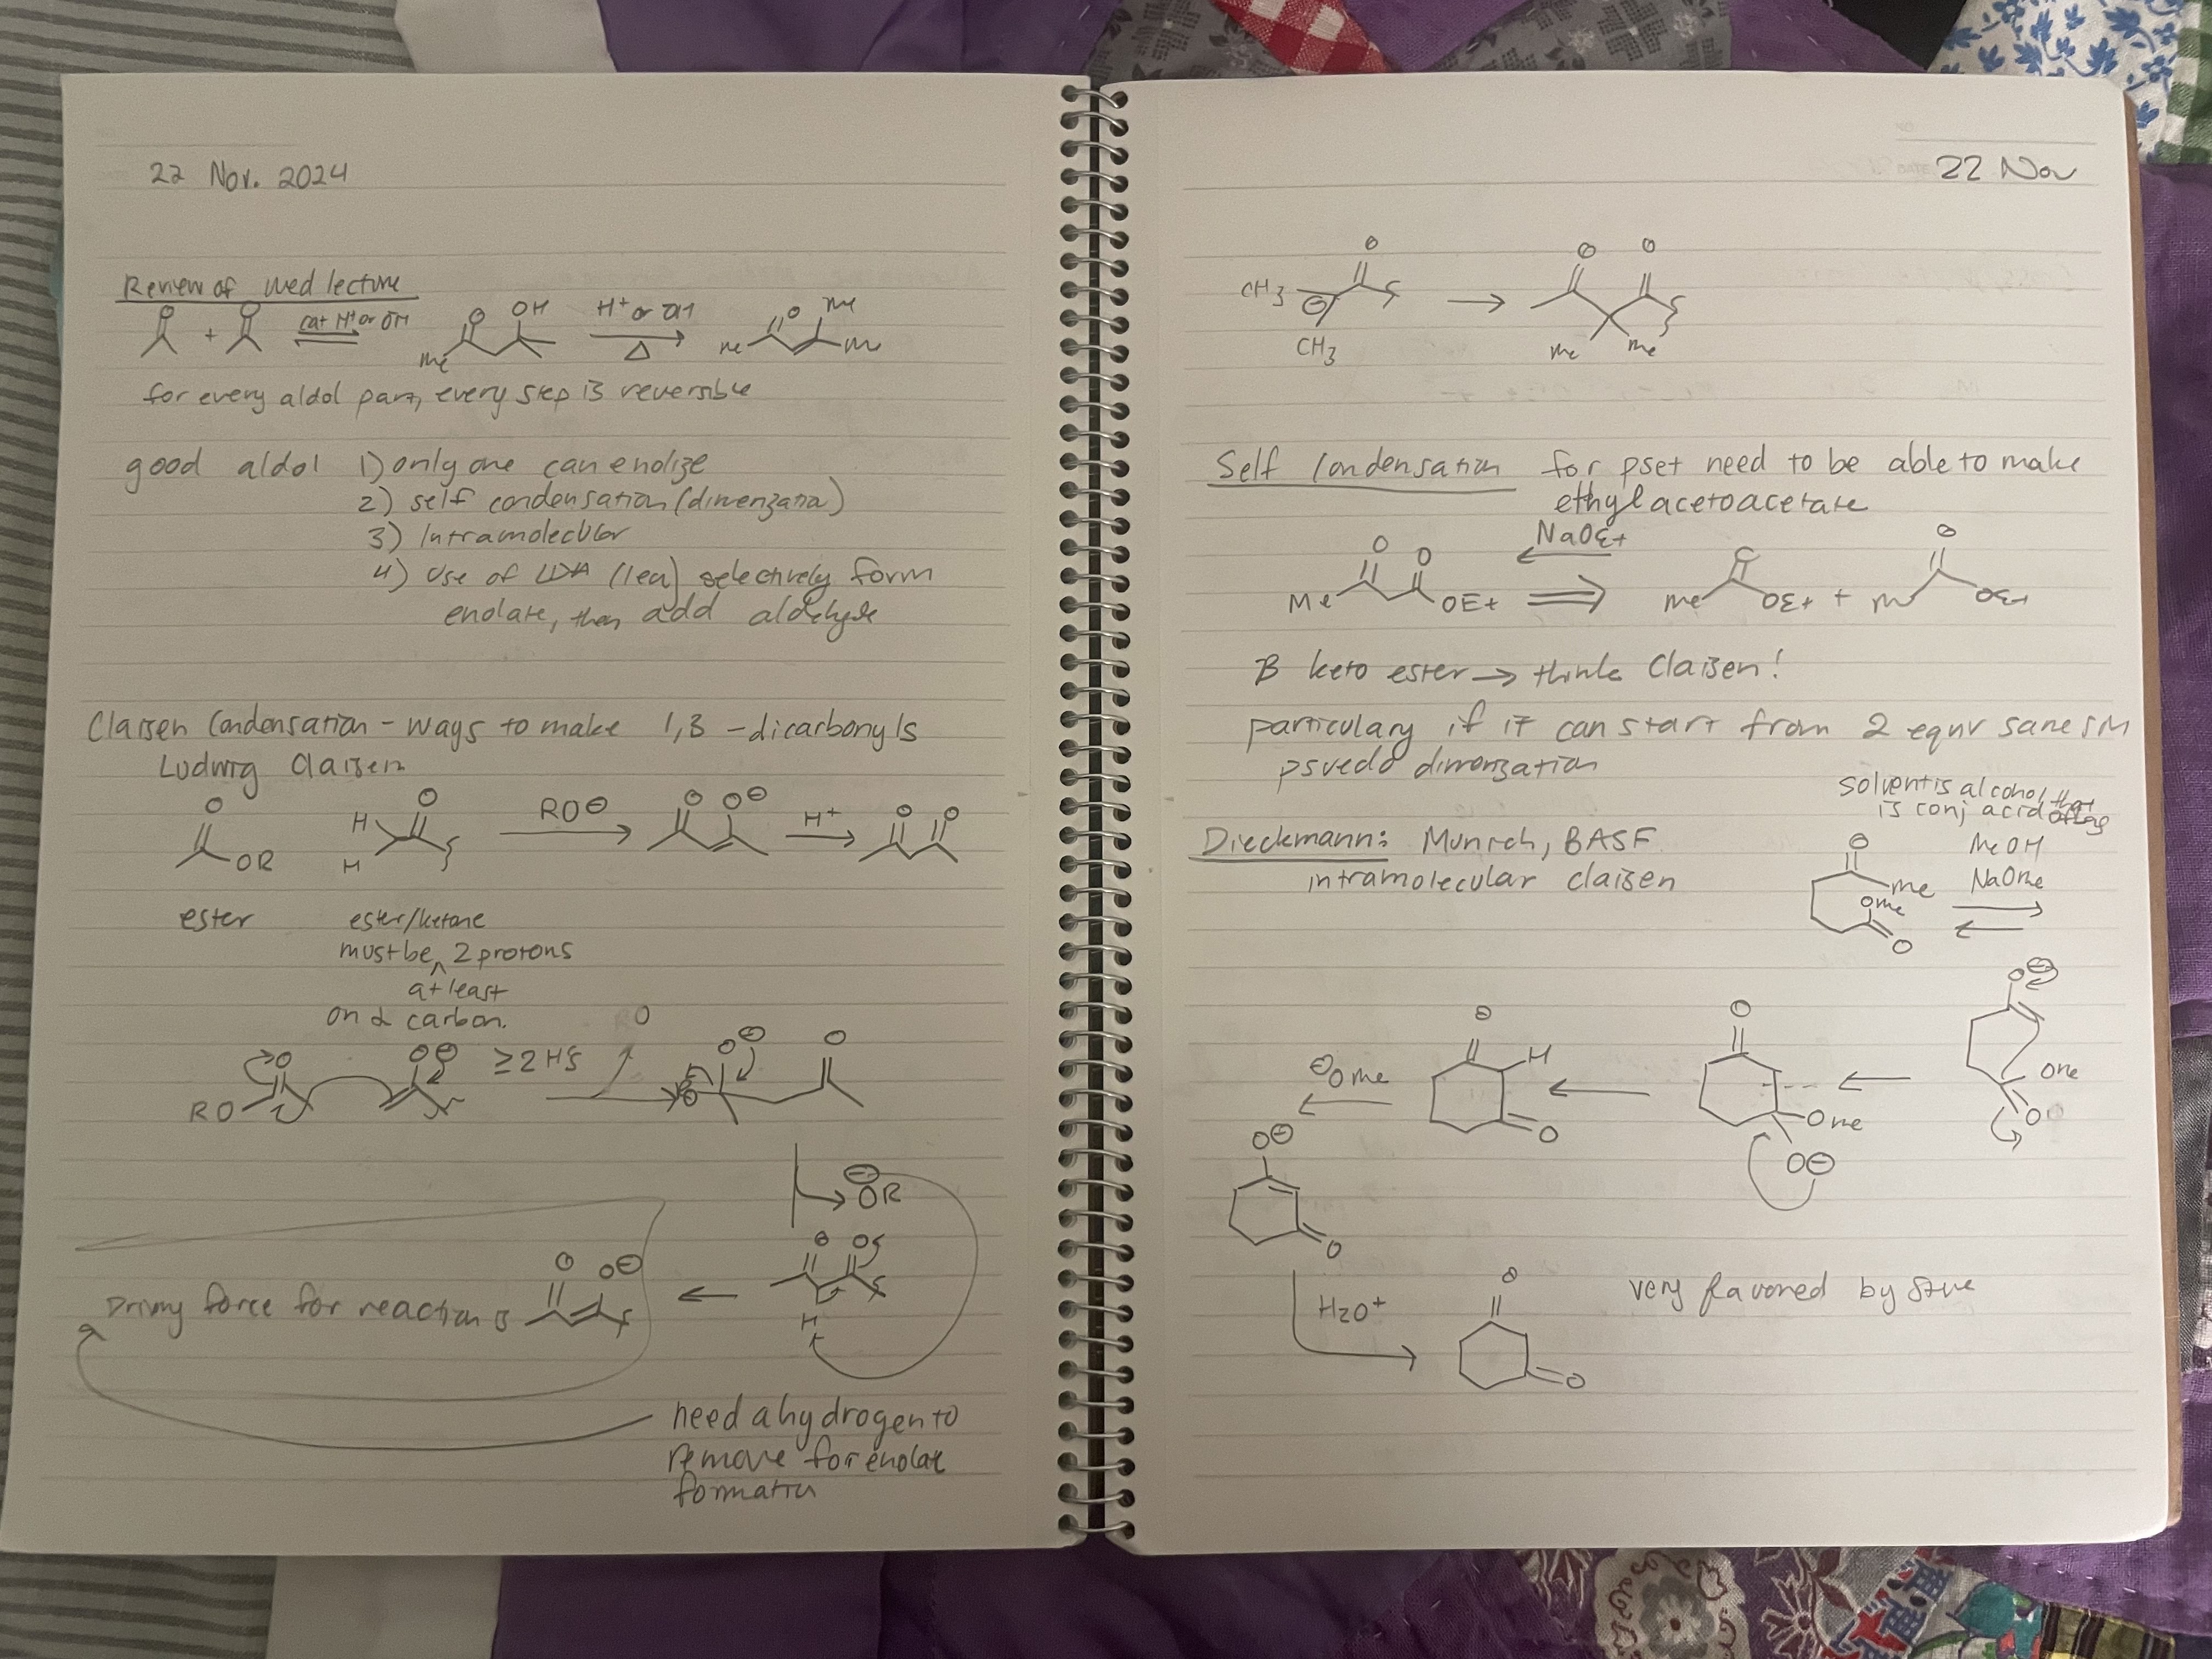 22 Nov. 2024
Review of Wed lecture
O O
+ cat H+ or OH
O OH
Me
H+ or OH
Δ
O Me
Me Me
for every aldol part, every step is reversible
good aldol 1) only one can enolize
2) self condensation (dimerization)
3) Intramolecular
4) Use of LDA (1eq) selectively form
enolate, then add aldehyde
Claisen Condensation - ways to make 1,3 - dicarbonyls
Ludwig Claisen
O O RO⊖ O O⊖ H+ O O
H
H
OR
ester ester/ketone
must be ^ 2 protons
at least
on α carbon.
O O⊖ ≥2 H's O⊖ O
RO
⊖OR
O O
H
Driving force for reaction is
O O⊖
need a hydrogen to
remove for enolate
formation
22 Nov
O O O
CH3
⊖
CH3 Me Me
Self Condensation for pset need to be able to make
ethylacetoacetate
NaOEt
O O O O
Me OEt Me OEt + OEt
B keto ester → think Claisen!
particulary if it can start from 2 equiv same SM
psuedo dimerization
solvent is alcohol that
is conj acid
Dieckmann: Munich, BASF
intramolecular claisen
O
Me
OMe
O
MeOH
NaOMe
O⊖
OMe
O
O
OMe
O⊖
O
H
O
⊖OMe
O⊖
O
H2O+
O
O
very flavored by